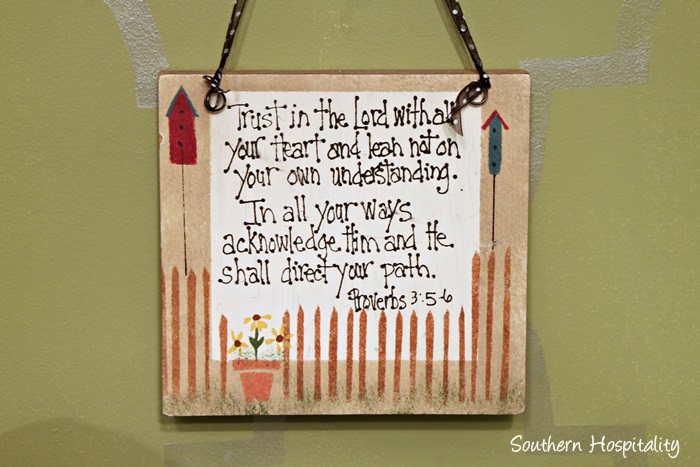 Trust in the Lord with all
your Heart and lean not on
your own understanding.
In all your ways
acknowledge Him and He
shall direct your path.
Proverbs 3:5-6
Southern Hospitality